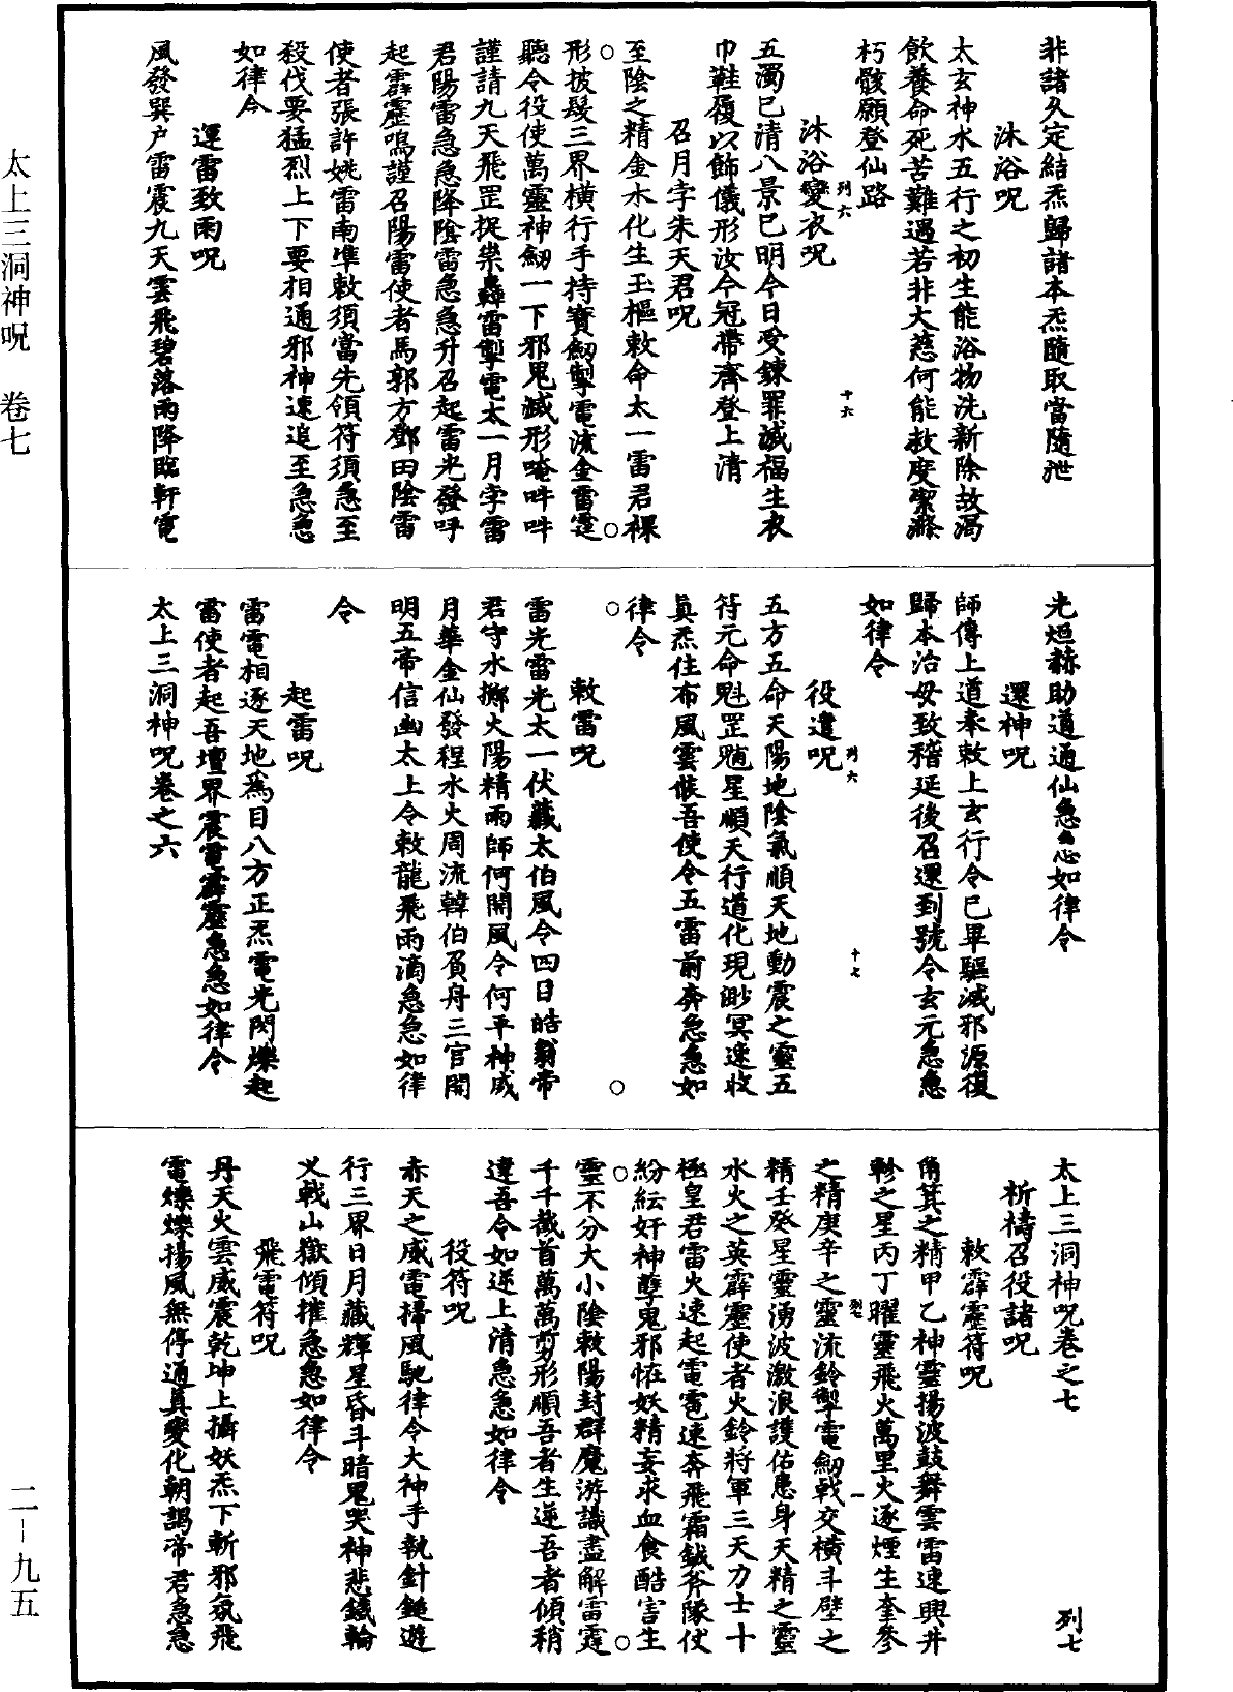 非諸久定結炁歸諸本炁隨取當隨泄
沐浴呪
太玄神水五行之初生能浴物洗新除故渴
飲養命死苦難遇若非大慈何能救度潔滌
朽骸願登仙路
沐浴變衣呪
列六
十六
五濁已清八景已明今日受鍊罪滅福生衣
巾鞋履以飾儀形汝今冠帶齊登上清
召月孛朱天君呪
至陰之精金水化生玉樞敕命太一雷君裸
形披髮三界橫行手持寶劒掣電流金雷霆
聽令役使萬靈神劒一下邪鬼滅形唵吽吽
謹請九天飛罡捉祟轟雷掣電太一月孛雷
君陽雷急急降陰雷急急升召起雷光發呼
起霹靂鳴謹召陽雷使者馬郭方鄧田陰雷
使者張許姚雷南準敕須當先領符須急至
殺伐要猛烈上下要相通邪神速追至急急
如律令
運雷致雨呪
風發巽户雷震九天雲飛碧落雨降臨軒電
光烜赫助道通仙急急如律令
還神呪
師傳上道奉敕上玄行令已畢驅滅邪源復
歸本治毋致稽延後召還到號令玄元急急
如律令
役遣呪
列六
十七
五方五命天陽地陰氣順天地動震之靈五
符元命魁罡魒星順天行道化現渺冥速收
真炁住布風雲倐吾使令五雷前奔急急如
律令
敕雷呪
雷光雷光太一伏藏太伯風令四目皓翁帝
君守水擲火陽精雨師何開風令何平神威
月華金仙發程水火周流韓伯負舟三官開
明五帝信幽太上令敕龍飛雨滴急急如律
令
起雷呪
雷電相逐天地爲目八方正炁電光閃爍起
雷使者起吾壇界震電霹靂急急如律令
太上三洞神呪卷之六
太上三洞神呪卷之七
列七
祈禱召役諸呪
敕霹靂符呪
角箕之精甲乙神靈揚波鼓舞雲雷速興井
軫之星丙丁曜靈飛火萬里火逐煙生奎參
之精庚辛之靈流鈴掣電劒戟交橫斗壁之
列七
一
精壬癸星靈湧波激浪護佑患身天精之靈
水火之英霹靂使者火鈴將軍三天力士十
極皇君雷火速起電雹速奔飛霜鉞斧隊仗
紛紜奸神孽鬼邪恠妖精妄求血食酷害生
靈不分大小陰敕陽封群魔游識盡解雷霆
千千截首萬萬剪形順吾者生逆吾者傾稍
違吾令如逆上清急急如律令
役符呪
赤天之威電掃風馳律令大神手執針鎚遊
行三界日月藏輝星昏斗暗鬼哭神悲鐵輪
乂戟山嶽傾摧急急如律令
飛電符呪
丹天火雲威震乾坤上攝妖炁下斬邪氛飛
電爍爍揚風無停通真變化朝謁帝君急急
太上三洞神呪　卷七
二-九五